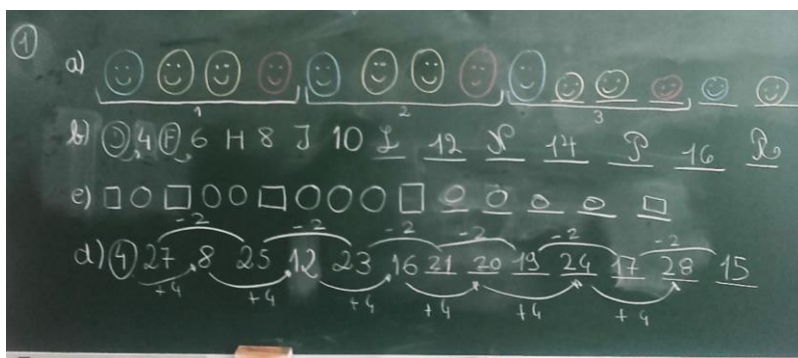 1
a)
1 2 3
b) D 4 F 6 H 8 J 10 L 12 N 14 P 16 R
c)
-2 -2 -2 -2 -2 -2
d) 4 27 8 25 12 23 16 21 20 19 24 17 28 15
+4 +4 +4 +4 +4 +4